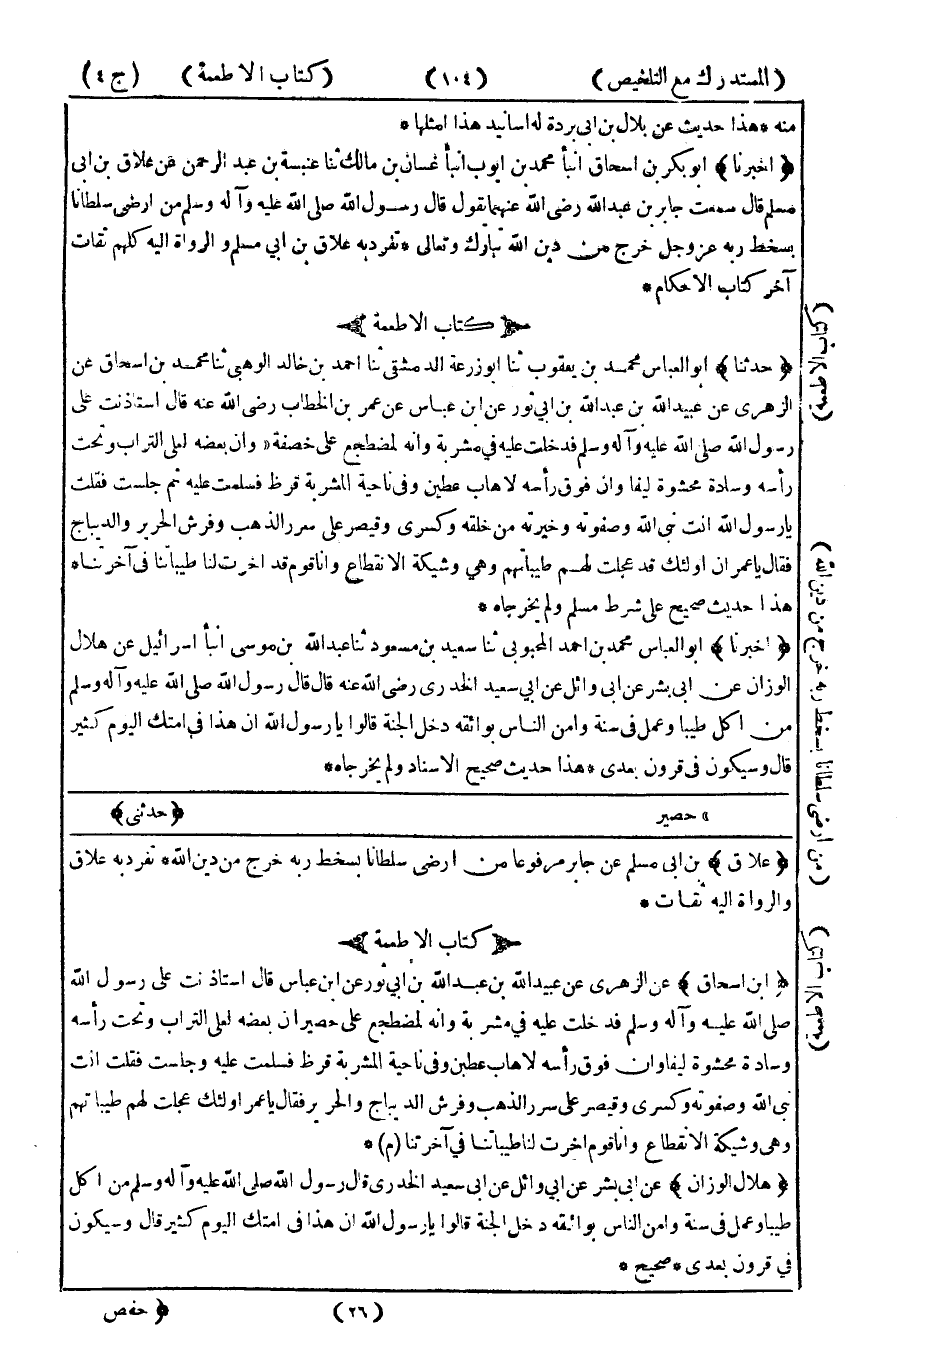 (المستدرك مع التلخيص) (١٠٤) (كتاب الاطعمة) (ج ٤)
منه * هذا حديث عن بلال بن ابى بردة له اسانيد هذا امثلها *
﴿ اخبرنا ﴾ ابو بكر بن اسحاق انبأ محمد بن ايوب انبأ غسان بن مالك ثنا عنبسة بن عبد الرحمن عن علاق بن ابى
مسلم قال سمعت جابر بن عبدالله رضى الله عنهما يقول قال رسول الله صلى الله عليه وآله وسلم من ارضى سلطانا
بسخط ربه عز وجل خرج من دين الله تبارك وتعالى * تفرد به علاق بن ابي مسلم و الرواة اليه كلهم ثقات
آخر كتاب الاحكام *
كتاب الاطعمة
﴿ حدثنا ﴾ ابو العباس محمد بن يعقوب ثنا ابو زرعة الدمشقى ثنا احمد بن خالد الوهبى ثنا محمد بن اسحاق عن
الزهرى عن عبيد الله بن عبدالله بن ابي ثور عن ابن عباس عن عمر بن الخطاب رضى الله عنه قال استاذنت على
رسول الله صلى الله عليه وآله وسلم فدخلت عليه في مشربة وانه لمضطجع على خصفة « وان بعضه لعلى التراب وتحت
رأسه وسادة محشوة ليفا وان فوق رأسه لاهاب عطين وفى ناحية المشربة قرظ فسلمت عليه ثم جلست فقلت
يارسول الله انت نبى الله وصفوته وخيرته من خلقه وكسرى وقيصر على سرر الذهب وفرش الحرير والديباج
فقال ياعمر ان اولئك قد عجلت لهم طيباتهم وهي وشيكة الانقطاع وانا قوم قد اخرت لنا طيباتنا فى آخرتنا *
هذا حديث صحيح على شرط مسلم ولم يخرجاه *
﴿ اخبرنا ﴾ ابو العباس محمد بن احمد المحبوبى ثنا سعيد بن مسعود ثنا عبدالله بن موسى انبأ اسرائيل عن هلال
الوزان عن ابى بشر عن ابى وائل عن ابي سعيد الخدرى رضى الله عنه قال قال رسول الله صلى الله عليه وآله وسلم
من اكل طيبا وعمل فى سنة وامن الناس بوائقه دخل الجنة قالوا يارسول الله ان هذا فى امتك اليوم كثير
قال وسيكون فى قرون بعدى * هذا حديث صحيح الاسناد ولم يخرجاه *
« حصير ﴿ حدثنى ﴾
﴿ علاق ﴾ بن ابى مسلم عن جابر مرفوعا من ارضى سلطانا بسخط ربه خرج من دين الله * تفرد به علاق
والرواة اليه ثقات *
كتاب الاطعمة
﴿ ابن اسحاق ﴾ عن الزهرى عن عبيدالله بن عبدالله بن ابي ثور عن ابن عباس قال استاذنت على رسول الله
صلى الله عليه وآله وسلم فدخلت عليه في مشربة وانه لمضطجع على حصير ان بعضه لعلى التراب وتحت رأسه
وسادة محشوة ليفا وان فوق رأسه لاهاب عطين وفى ناحية المشربة قرظ فسلمت عليه وجلست فقلت انت
نبى الله وصفوته وكسرى وقيصر على سرر الذهب وفرش الديباج والحرير فقال ياعمر اولئك عجلت لهم طيباتهم
وهى وشيكة الانقطاع وانا قوم اخرت لنا طيباتنا في آخرتنا (م) *
﴿ هلال الوزان ﴾ عن ابى بشر عن ابي وائل عن ابى سعيد الخدرى قال رسول الله صلى الله عليه وآله وسلم من اكل
طيبا وعمل فى سنة وامن الناس بوائقه دخل الجنة قالوا يارسول الله ان هذا فى امتك اليوم كثير قال وسيكون
في قرون بعدى * صحيح *
(٢٦) ﴿ حفص
(من ارضى سلطانا بسخط ربه خرج من دين الله)